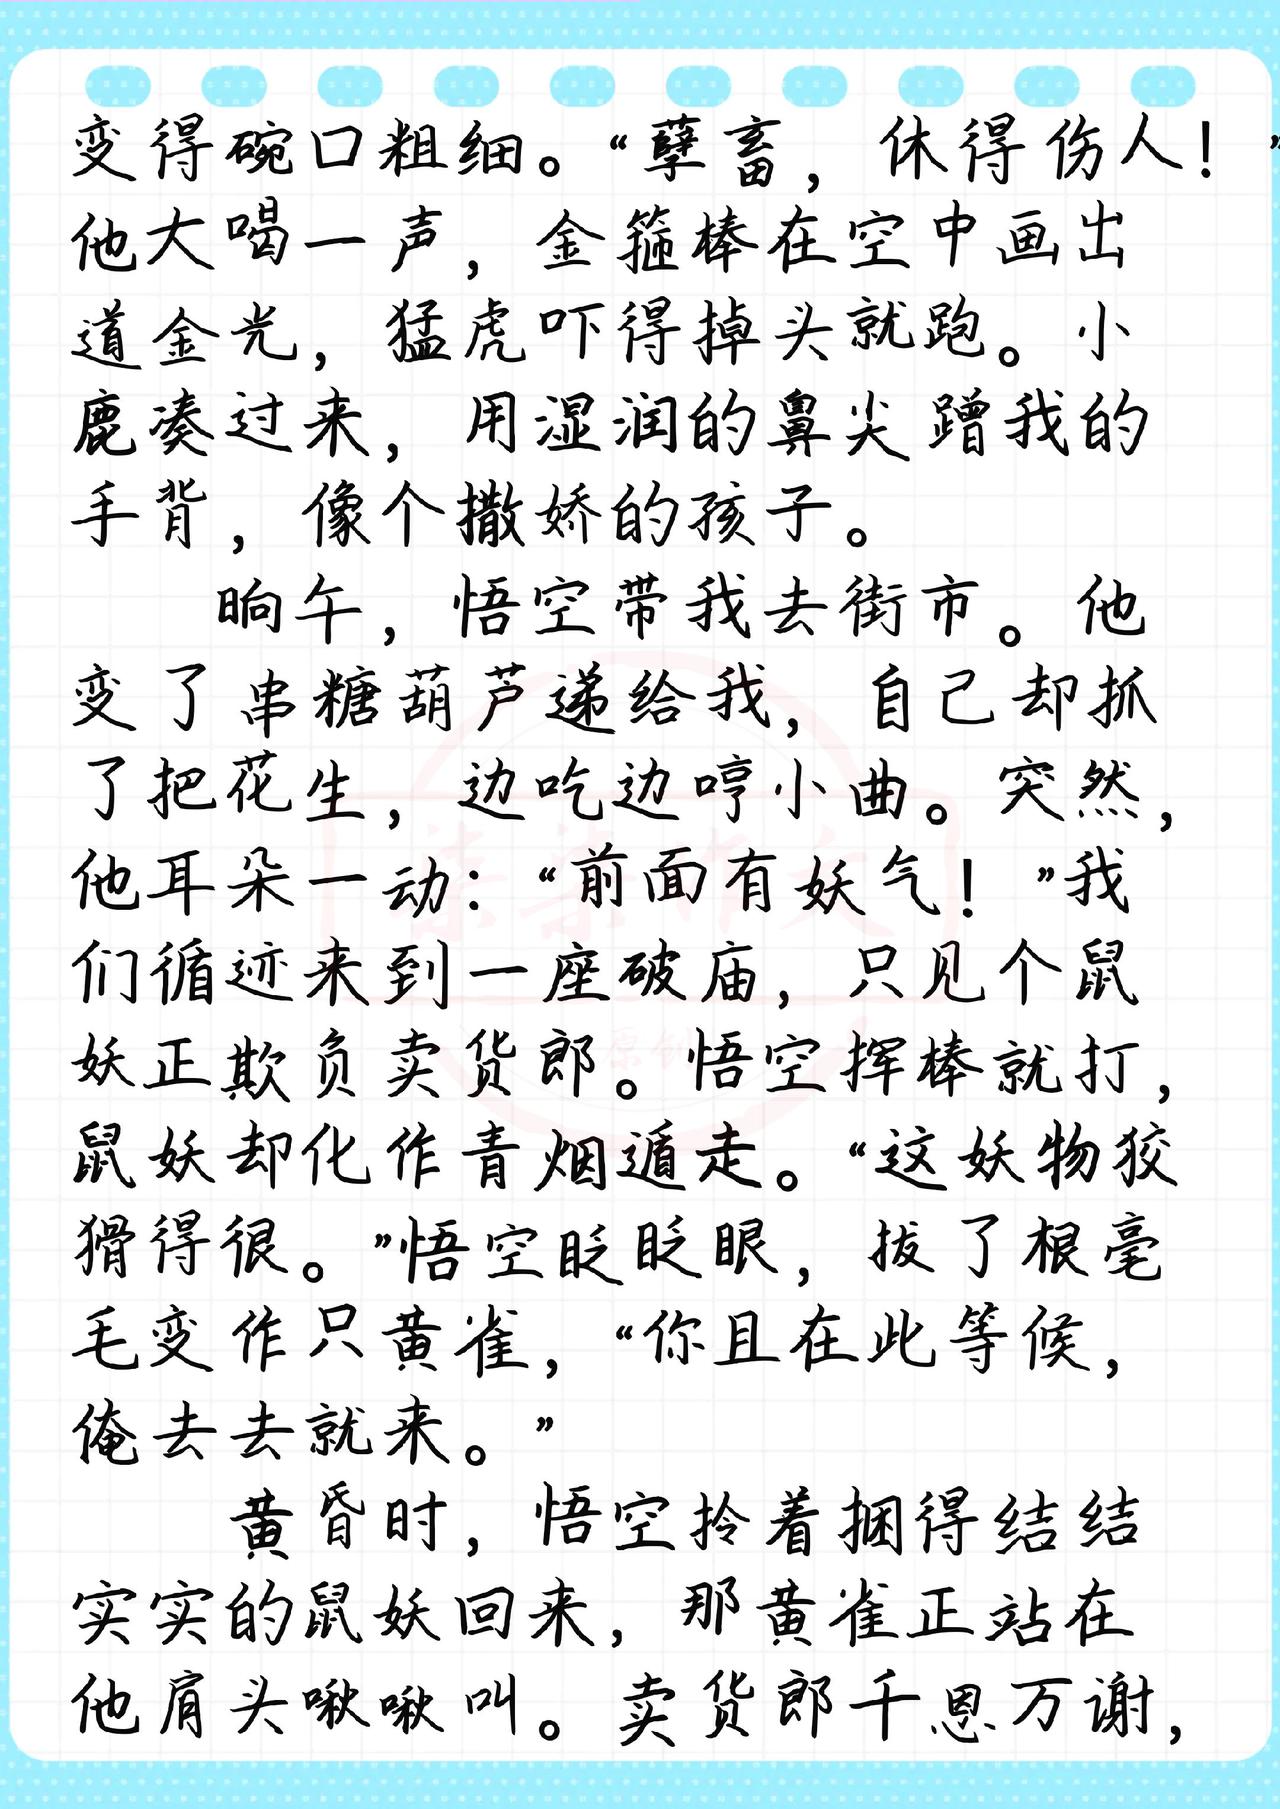 变得碗口粗细。“孽畜，休得伤人！”
他大喝一声，金箍棒在空中画出
道金光，猛虎吓得掉头就跑。小
鹿凑过来，用湿润的鼻尖蹭我的
手背，像个撒娇的孩子。
晌午，悟空带我去街市。他
变了串糖葫芦递给我，自己却抓
了把花生，边吃边哼小曲。突然，
他耳朵一动：“前面有妖气！”我
们循迹来到一座破庙，只见个鼠
妖正欺负卖货郎。悟空挥棒就打，
鼠妖却化作青烟遁走。“这妖物狡
猾得很。”悟空眨眨眼，拔了根毫
毛变作只黄雀，“你且在此等候，
俺去去就来。”
黄昏时，悟空拎着捆得结结
实实的鼠妖回来，那黄雀正站在
他肩头啾啾叫。卖货郎千恩万谢，
原创